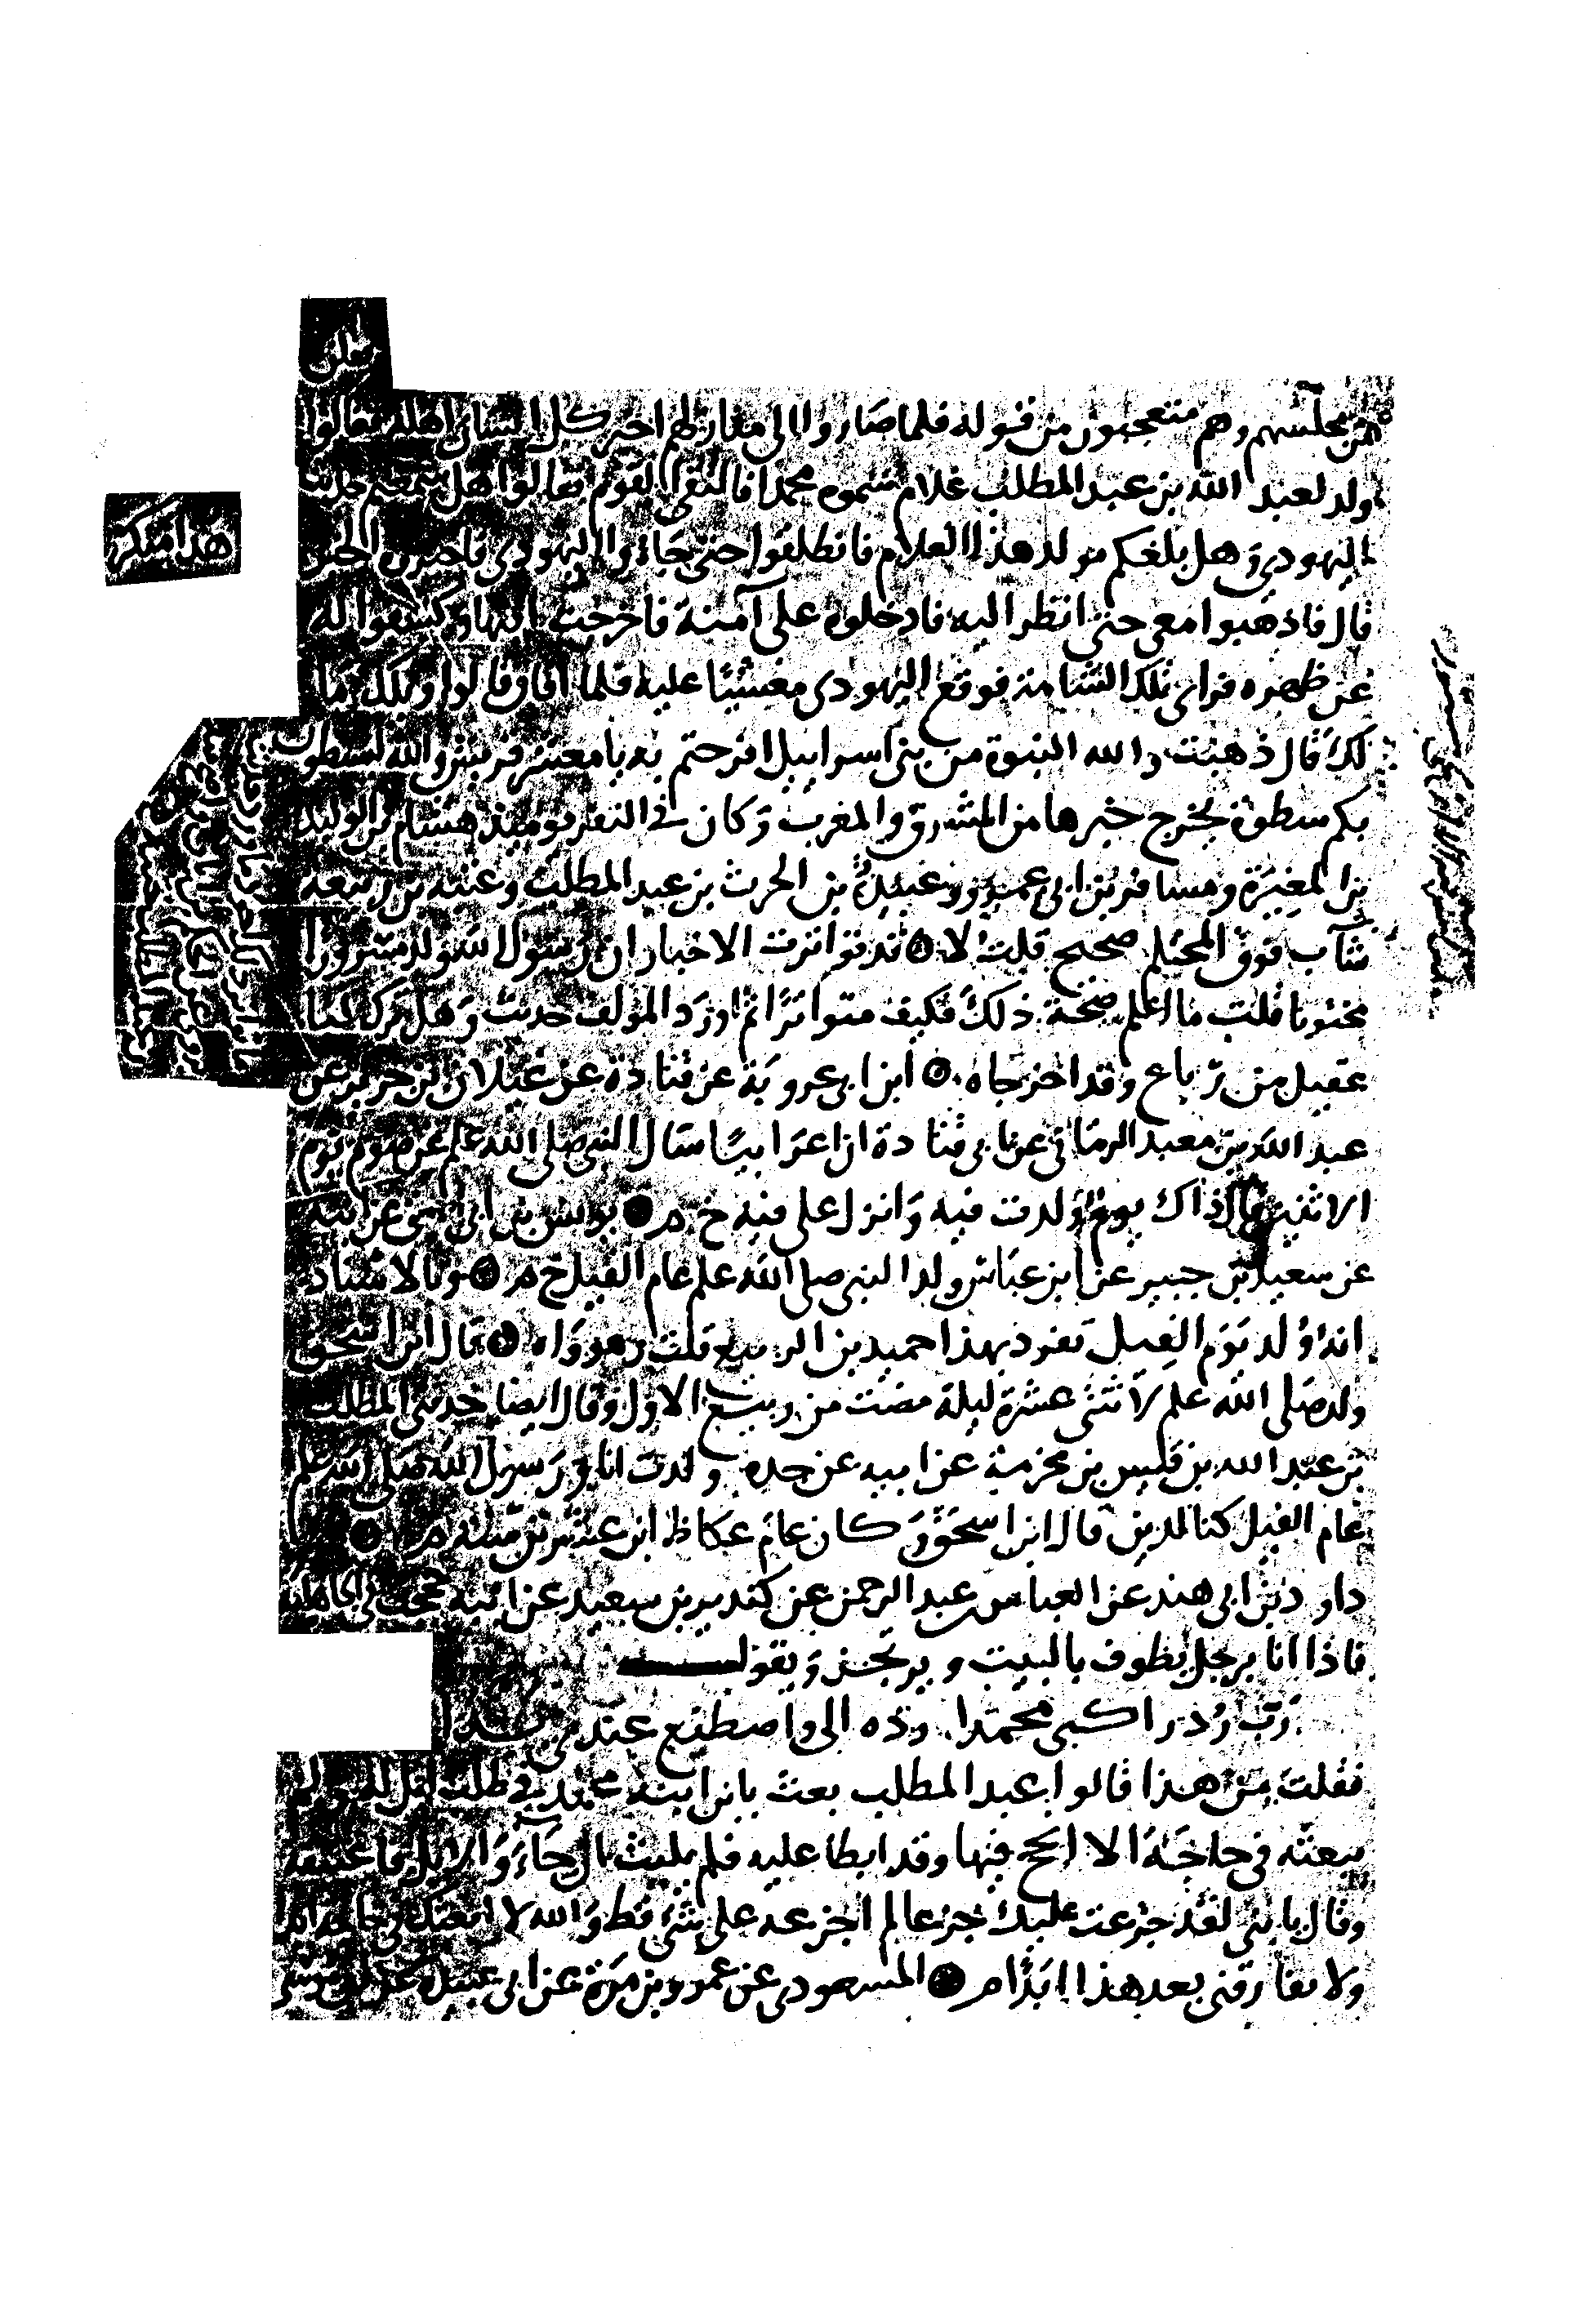 من مجلسهم وهم متعجبون من قوله فلما صاروا الى منازلهم اخبر كل انسان اهله فقالوا
ولد لعبد الله بن عبد المطلب غلام سموه محمدا فالتقى القوم فقالوا هل سمعتم حديث
اليهودي وهل بلغكم مولد هذا الغلام فانطلقوا حتى جاءوا اليهودي فاخبروه الخبر
قال فاذهبوا معي حتى انظر اليه فادخلوه على آمنة فاخرجت ابنها وكشفوا له
عن ظهره فراى تلك الشامة فوقع اليهودي مغشيا عليه فلما افاق قالوا ويلك ما
لك قال ذهبت والله النبوة من بني اسراييل افرحتم به يا معشر قريش والله ليسطون
بكم سطوة يخرج خبرها من المشرق والمغرب وكان في النفر يوميذ هشام بن الوليد
بن المغيرة ومسافر بن ابي عمرو وعبيدة بن الحرث بن عبد المطلب وعتبه بن ربيعه
شاب فوق المحتلم صحيح قلت لا ۞ قد تواترت الاخبار ان رسول الله ولد مسرورا
مختونا قلت ما اعلم صحة ذلك فكيف متواترا ثم اورد المولف حديث وهل ترك لنا
عقيل من رباع وقد اخرجاه ۞ ابن ابي عروبة عن قتادة عن غيلان بن جرير عن
عبد الله بن معبد الزماني عن ابي قتادة ان اعرابيا سال النبي صلى الله علم عن صوم يوم
الاثنين قال ذاك يوم ولدت فيه وانزل علي فيه خ م ۞ يونس بن ابي اسحق عن ابيه
عن سعيد بن جبير عن ابن عباس ولد النبي صلى الله علم عام الفيل خ م ۞ وبالاسناد
انه ولد يوم الفيل تفرد بهذا حميد بن الربيع قلت رهو واه ۞ قال ابن اسحق
ولد صلى الله علم لاثنتي عشرة ليلة مضت من ربيع الاول وقال ايضا حدثني المطلب
بن عبد الله بن قيس بن مخرمة عن ابيه عن جده ولدت انا ورسول الله صلى الله علم
عام الفيل كنا لدين قال ابن اسحق وكان عام عكاظ ابن عشرين سنه م ۞
داود بن ابي هند عن العباس عبد الرحمن عن كندير بن سعيد عن ابيه حججت في الجاهلية
فاذا انا برجل يطوف بالبيت و يرتجز ويقول
رب رد راكبي محمدا رده الي واصطنع عندي يدا
فقلت من هذا قالوا عبد المطلب بعث بابن ابنه محمد في طلب ابل له ولم
يبعثه في حاجة الا انجح فيها وقد ابطا عليه فلم يلبث ان جاء والابل فاعتنقه
وقال يا بني لقد جزعت عليك جزعا لم اجزعه على شيء قط والله لا ابعثك في حاجة ابدا
ولا تفارقني بعد هذا ابدا م ۞ المسعودي عن عمرو بن مرة عن ابي عبيدة عن ابي موسى
هذا منكر